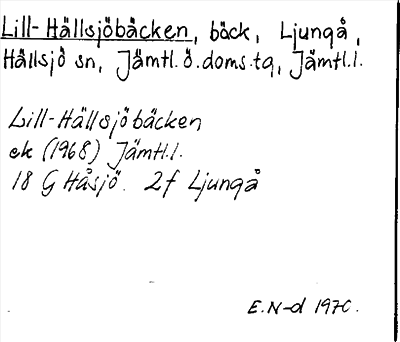 Lill-Hällsjöbäcken, bäck, Ljungå,
Hällsjö sn, Jämtl.ö.doms.tg, Jämtl.l.
Lill-Hällsjöbäcken
ek (1968) Jämtl.l.
18 G Håsjö. 2f Ljungå
E.N-d 1970.